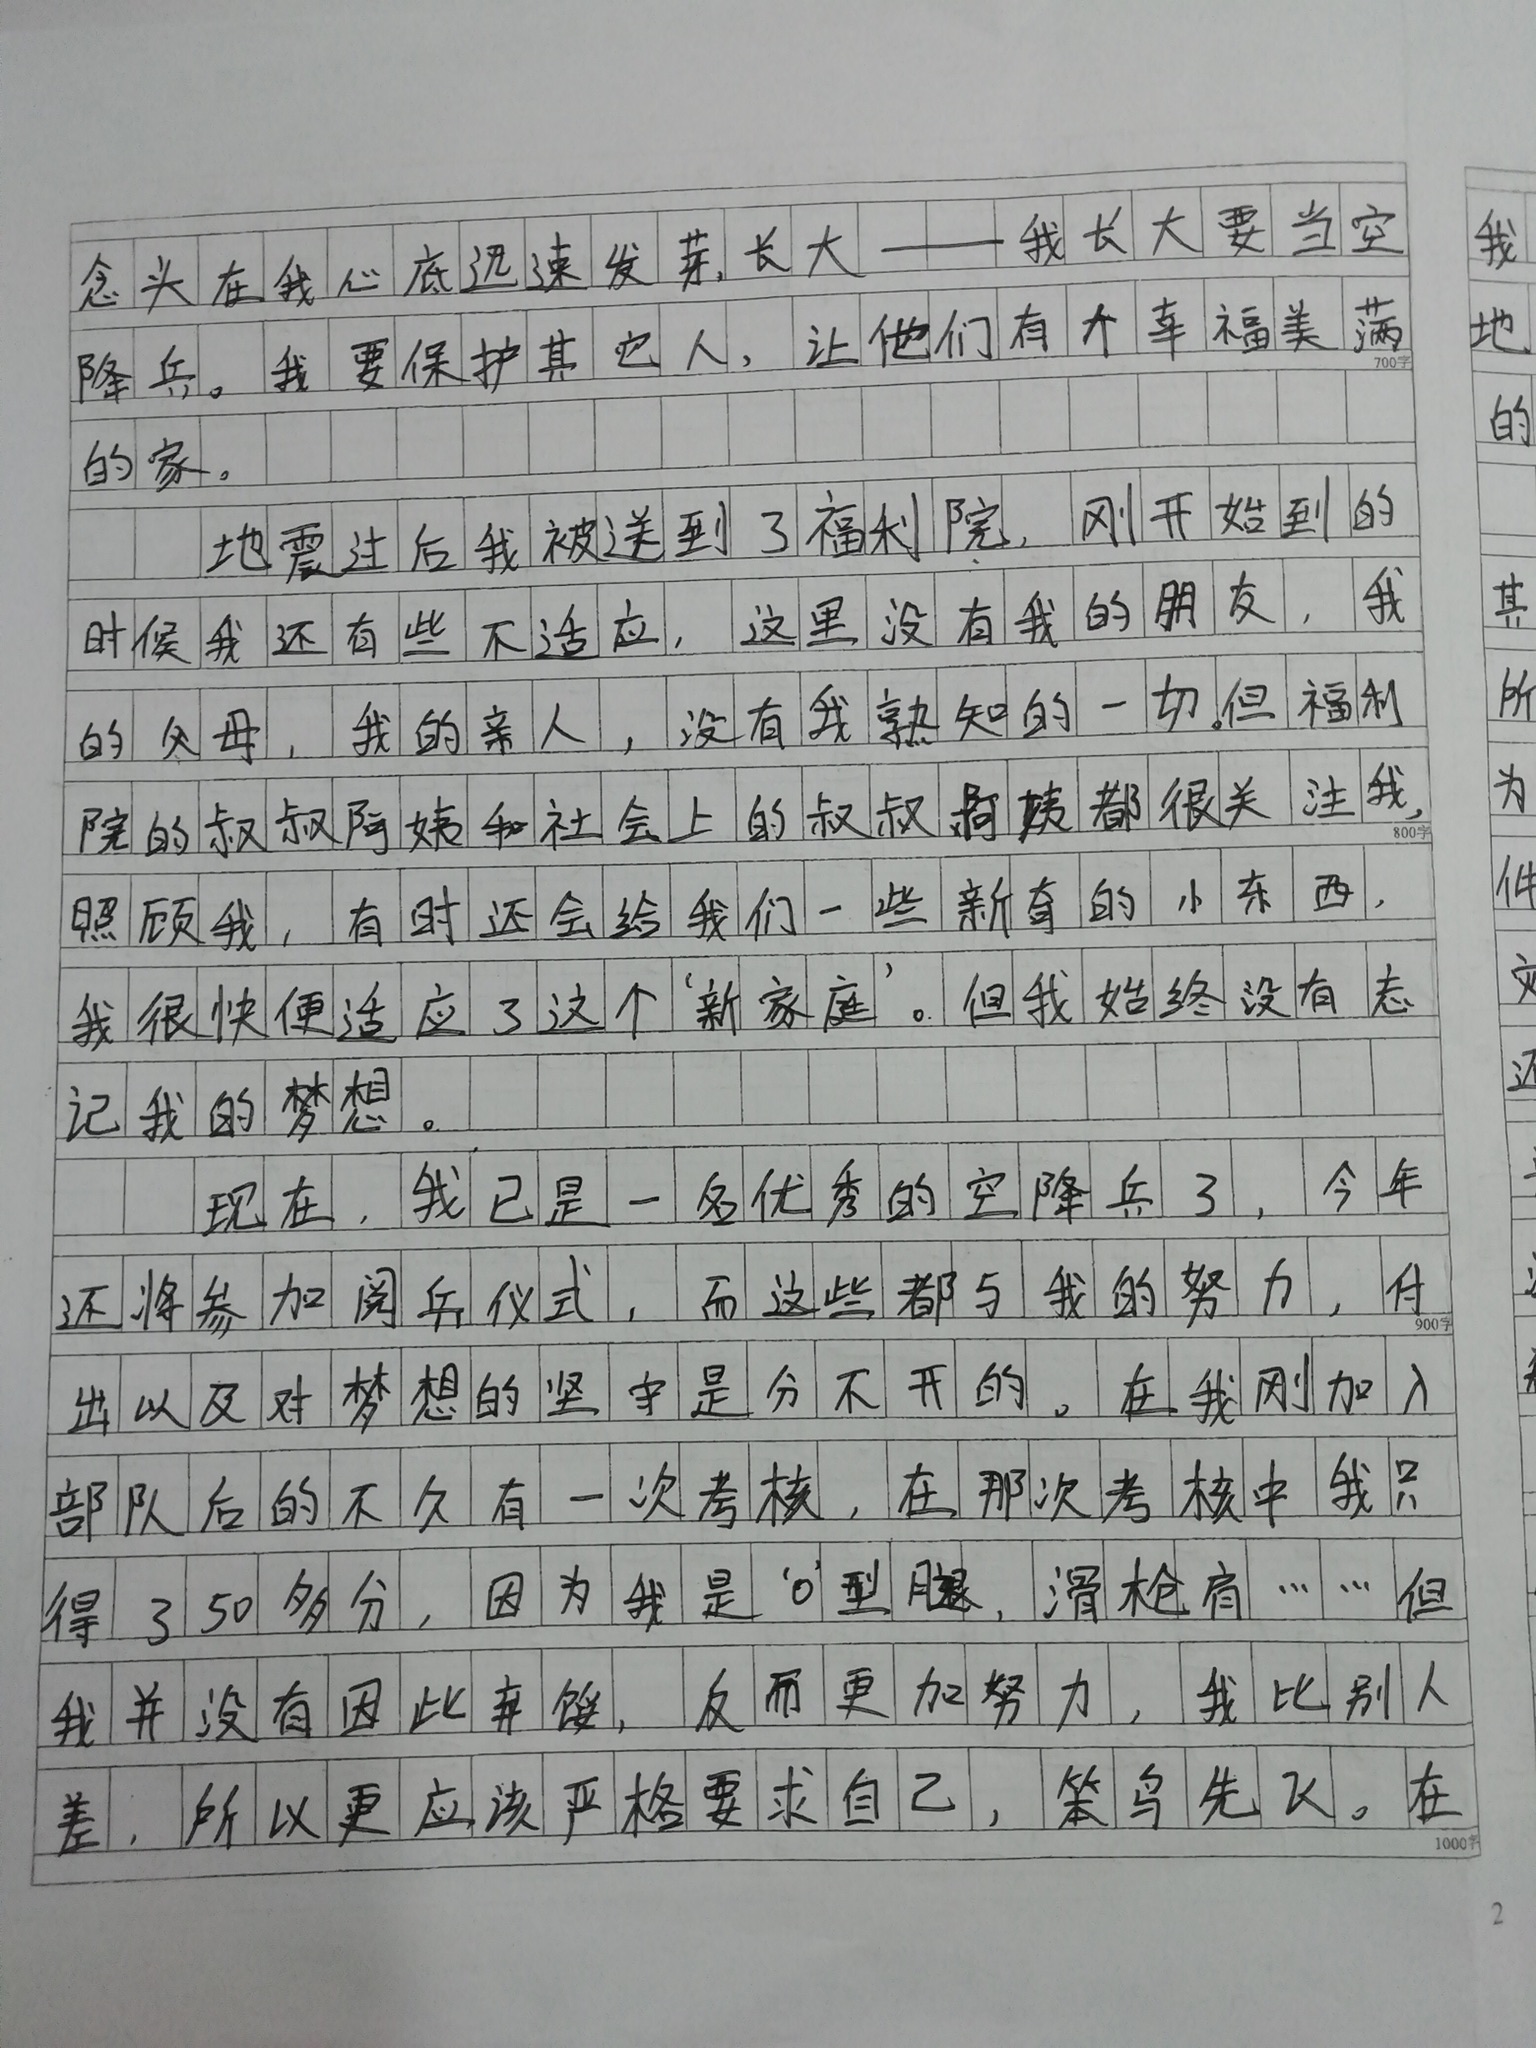 念头在我心底迅速发芽,长大——我长大要当空
降兵。我要保护其它人,让他们有个幸福美满
700字
的家。
地震过后我被送到了福利院,刚开始到的
时候我还有些不适应,这里没有我的朋友,我
的父母,我的亲人,没有我熟知的一切。但福利
院的叔叔阿姨和社会上的叔叔阿姨都很关注我,
800字
照顾我,有时还会给我们一些新奇的小东西,
我很快便适应了这个‘新家庭’。但我始终没有忘
记我的梦想。
现在,我已是一名优秀的空降兵了,今年
还将参加阅兵仪式,而这些都与我的努力,付
900字
出以及对梦想的坚守是分不开的。在我刚加入
部队后的不久有一次考核,在那次考核中我只
得350多分,因为我是‘O’型腿,滑枪肩……但
我并没有因此弃馁,反而更加努力,我比别人
差,所以更应该严格要求自己,笨鸟先飞。在
1000字
我
地
的
其
所
为
件
还
2